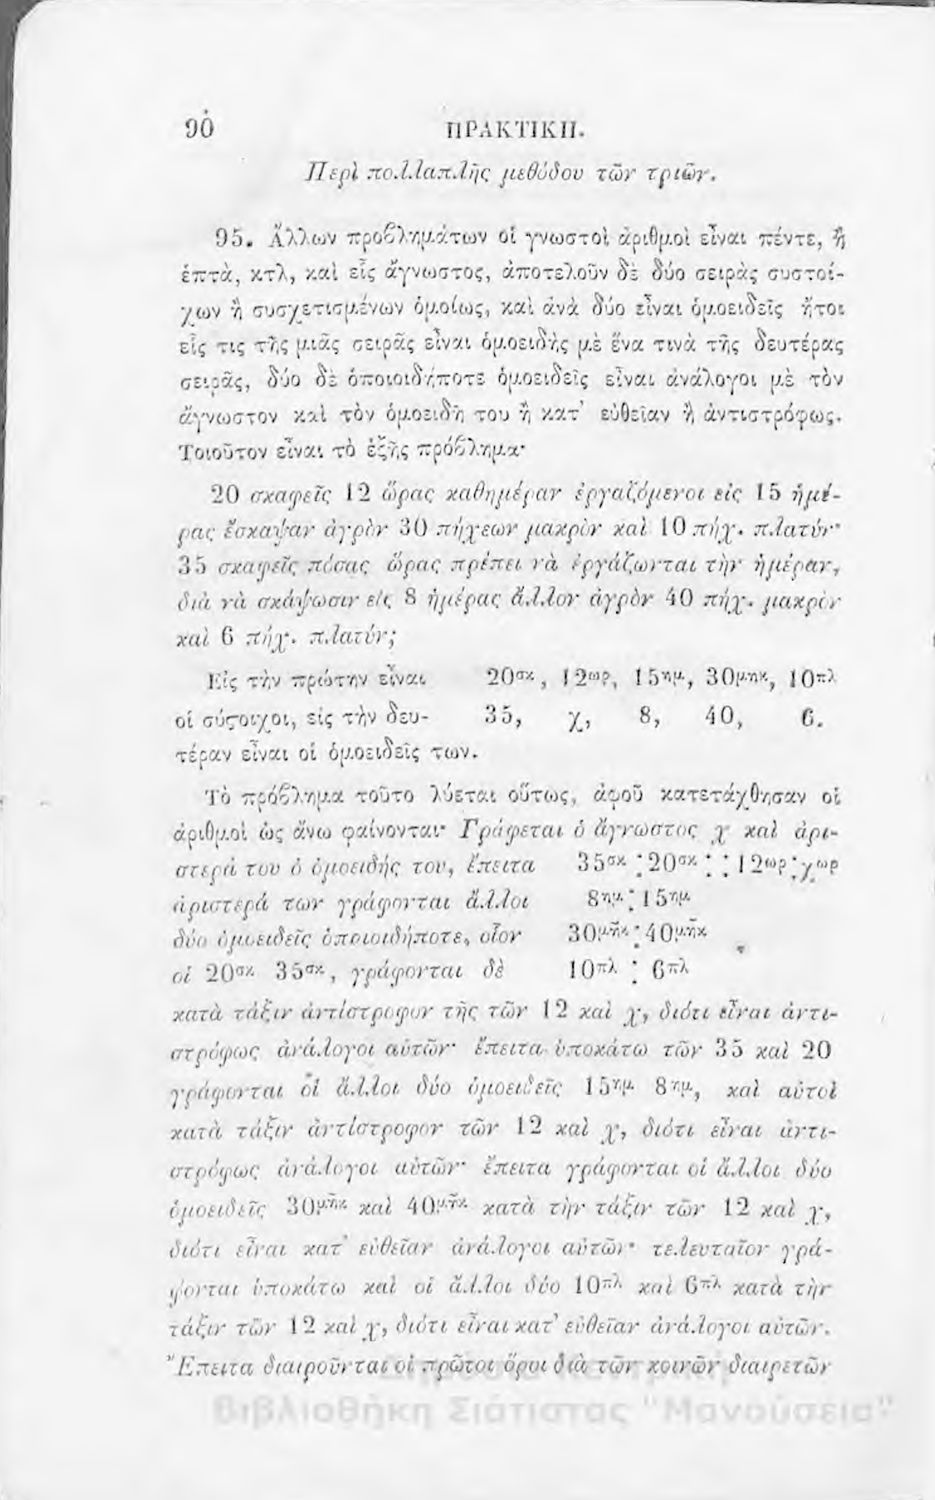 90
ΠΡΑΚΤΙΚΗ.
Περὶ πολλαπλῆς μεθόδου τῶν τριῶν.
95. Ἄλλων προβλημάτων οἱ γνωστοὶ ἀριθμοὶ εἶναι πέντε, ἢ
ἑπτὰ, κτλ, καὶ εἷς ἄγνωστος, ἀποτελοῦν δὲ δύο σειρὰς συστοί-
χων ἢ συσχετισμένων ὁμοίως, καὶ ἀνὰ δύο εἶναι ὁμοειδεῖς ἤτοι
εἷς τις τῆς μιᾶς σειρᾶς εἶναι ὁμοειδὴς μὲ ἕνα τινὰ τῆς δευτέρας
σειρᾶς, δύο δὲ ὁποιοιδήποτε ὁμοειδεῖς εἶναι ἀνάλογοι μὲ τὸν
ἄγνωστον καὶ τὸν ὁμοειδῆ του ἢ κατ' εὐθεῖαν ἢ ἀντιστρόφως.
Τοιοῦτον εἶναι τὸ ἑξῆς πρόβλημα·
20 σκαφεῖς 12 ὥρας καθημέραν ἐργαζόμενοι εἰς 15 ἡμέ-
ρας ἔσκαψαν ἀγρὸν 30 πήχεων μακρὸν καὶ 10 πήχ. πλατύν·
35 σκαφεῖς πόσας ὥρας πρέπει νὰ ἐργάζωνται τὴν ἡμέραν,
διὰ νὰ σκάψωσιν εἰς 8 ἡμέρας ἄλλον ἀγρὸν 40 πήχ. μακρὸν
καὶ 6 πήχ. πλατύν;
Εἰς τὴν πρώτην εἶναι 20σκ, 12ωρ, 15ημ, 30μηκ, 10πλ
οἱ σύςοιχοι, εἰς τὴν δευ- 35, χ, 8, 40, 6.
τέραν εἶναι οἱ ὁμοειδεῖς των.
Τὸ πρόβλημα τοῦτο λύεται οὕτως, ἀφοῦ κατετάχθησαν οἱ
ἀριθμοὶ ὡς ἄνω φαίνονται· Γράφεται ὁ ἄγνωστος χ καὶ ἀρι-
στερά του ὁ ὁμοειδής του, ἔπειτα 35σκ : 20σκ : : 12ωρ : χωρ
ἀριστερά των γράφονται ἄλλοι 8ημ : 15ημ
δύο ὁμοειδεῖς ὁποιοιδήποτε, οἷον 30μῆκ : 40μῆκ
οἱ 20σκ 35σκ, γράφονται δὲ 10πλ : 6πλ
κατὰ τάξιν ἀντίστροφον τῆς τῶν 12 καὶ χ, διότι εἶναι ἀντι-
στρόφως ἀνάλογοι αὐτῶν· ἔπειτα ὑποκάτω τῶν 35 καὶ 20
γράφονται οἱ ἄλλοι δύο ὁμοειδεῖς 15ημ 8ημ, καὶ αὐτοὶ
κατὰ τάξιν ἀντίστροφον τῶν 12 καὶ χ, διότι εἶναι ἀντι-
στρόφως ἀνάλογοι αὐτῶν· ἔπειτα γράφονται οἱ ἄλλοι δύο
ὁμοειδεῖς 30μῆκ καὶ 40μῆκ κατὰ τὴν τάξιν τῶν 12 καὶ χ,
διότι εἶναι κατ' εὐθεῖαν ἀνάλογοι αὐτῶν· τελευταῖον γρά-
φονται ὑποκάτω καὶ οἱ ἄλλοι δύο 10πλ καὶ 6πλ κατὰ τὴν
τάξιν τῶν 12 καὶ χ, διότι εἶναι κατ' εὐθεῖαν ἀνάλογοι αὐτῶν.
Ἔπειτα διαιροῦνται οἱ πρῶτοι ὅροι διὰ τῶν κοινῶν διαιρετῶν
Βιβλιοθήκη Σιάτιστας "Μανούσεια"